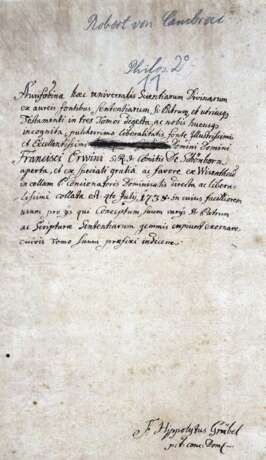 Robert von Cambrai
Philos 2°
17
Aurifodina haec universalis Scientiarum Divinarum
ex aureis fontibus, sententiarum SS. Patrum, et utriusq
Testamenti in tres Tomos digesta, ac nobis hucusq
incognita, liberalitatis fonte Illustrissimi
et Excellentissimi Domini Domini
Francisci Erwini S. R. I. Comitis de Schönborn
aperta, et ex speciali gratia ac favore ex
in collam P. Concionatoris Dominicalis directa ac liber-
lissime collata est July 1738. in cuius faciliorem
usum pro qui Conceptum suum SS. Patrum
ac Scripturae Sententiarum gemmis exornare
cuivis Tomo suum praefixi indicem.
F. Hyppolytus Grübel
p.t. conc: Dom: